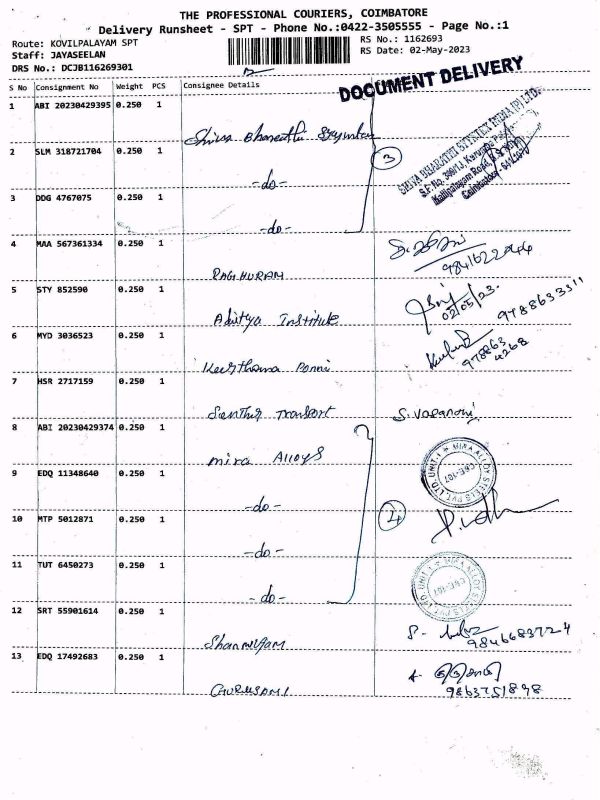 THE PROFESSIONAL COURIERS, COIMBATORE
Delivery Runsheet - SPT - Phone No.:0422-3505555 - Page No.:1
Route: KOVILPALAYAM SPT
RS No.: 1162693
Staff: JAYASEELAN
RS Date: 02-May-2023
DRS No.: DCJB116269301
DOCUMENT DELIVERY
S No Consignment No Weight PCS Consignee Details
1 ABI 20230429395 0.250 1 Shiva Bharathi
SHIVA BHARATHI SYSTEX INDIA (P) LTD.
2 SLM 318721704 0.250 1 -do-
3
3 DDG 4767075 0.250 1 -do-
4 MAA 567361334 0.250 1 RAGHURAM
5 STY 852590 0.250 1 Aditya Institute
02/05/23. 9788633311
6 MYD 3036523 0.250 1 Keerthana Ponni
978863
4268
7 HSR 2717159 0.250 1 Transport
8 ABI 20230429374 0.250 1 Mira Alloys
UNIT-1 MIRA ALLOY STEELS PVT LTD CBE-107
9 EDQ 11348640 0.250 1 -do-
4
10 MTP 5012871 0.250 1 -do-
11 TUT 6450273 0.250 1 -do-
UNIT-1 MIRA ALLOY STEELS PVT LTD CBE-107
12 SRT 55901614 0.250 1 Shanmugam
9846683724
13 EDQ 17492683 0.250 1 GURUSAMI
9863751898